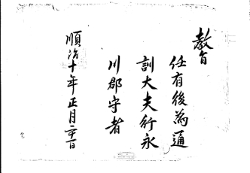 教旨
任有後為通
訓大夫行永
川郡守者
順治十年正月二十二日